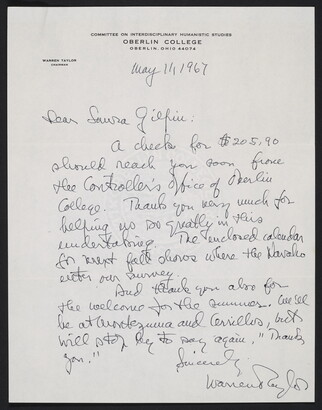 COMMITTEE ON INTERDISCIPLINARY HUMANISTIC STUDIES
OBERLIN COLLEGE
OBERLIN, OHIO 44074
WARREN TAYLOR
CHAIRMAN
May 11, 1967
Dear Laura Gilpin:
A check for $205.90
should reach you soon from
the Controller's Office of Oberlin
College. Thank you very much for
helping us so greatly in this
undertaking. The enclosed calendar
for next fall shows where the Navaho
enter our survey.
And thank you also for
the welcome for the summer. We'll
be at Montezuma and Cerrillos, but
will stop by to say again, "Thank
you."
Sincerely,
Warren Taylor